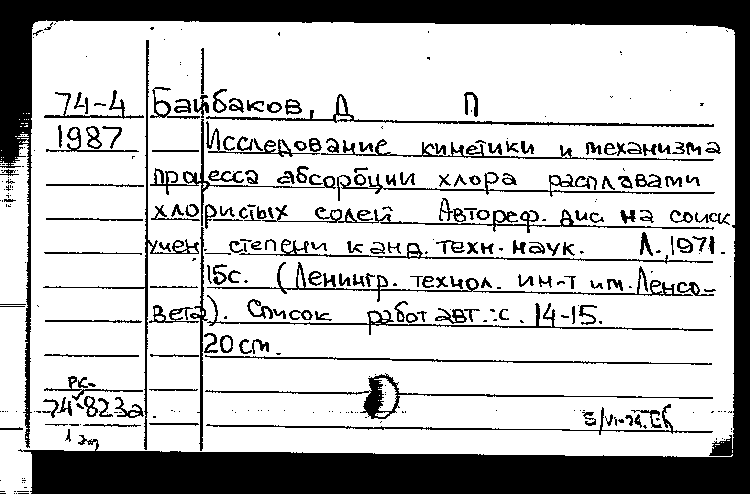 74-4 Байбаков, Д П
1987 Исследование кинетики и механизма
процесса абсорбции хлора расплавами
хлористых солей. Автореф. дис на соиск.
учен. степени канд. техн. наук. Л., 1971.
15с. (Ленингр. технол. ин-т им. Ленсо-
вета). Список работ авт.: с. 14-15.
20 см.
РК-
74-823а.
1 экз